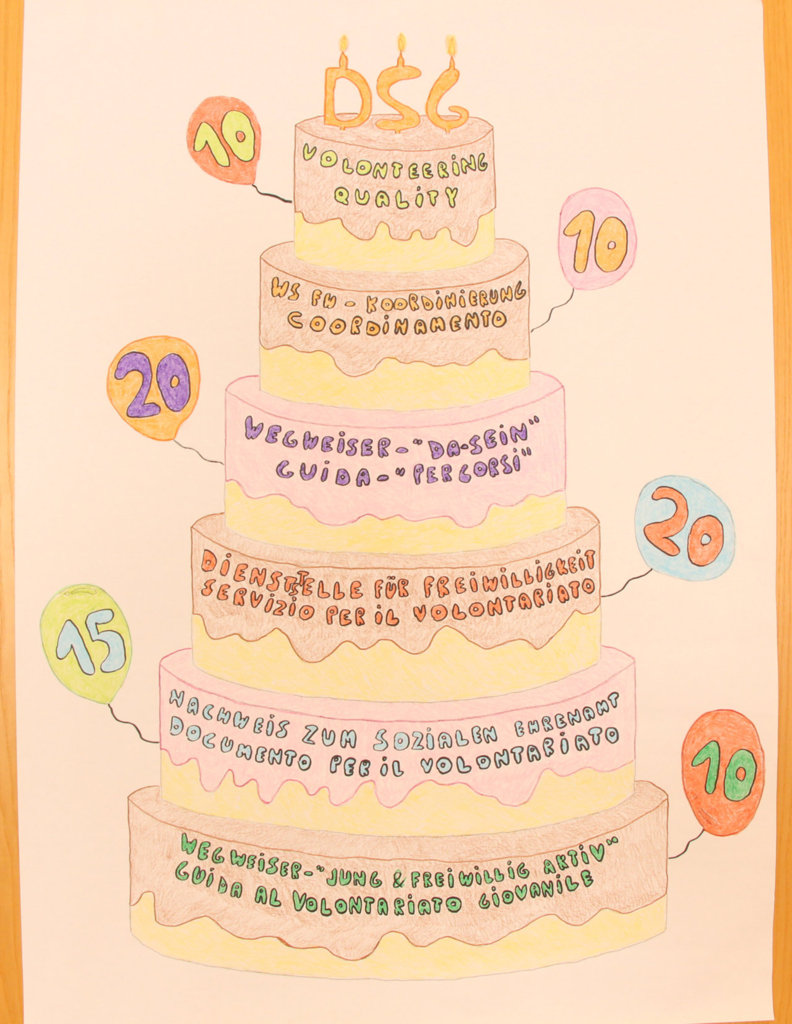 DSG
10
VOLONTEERING
QUALITY
10
WS FW - KOORDINIERUNG
COORDINAMENTO
20
WEGWEISER - "DA-SEIN"
GUIDA - "PERCORSI"
20
DIENSTSTELLE FÜR FREIWILLIGKEIT
SERVIZIO PER IL VOLONTARIATO
15
NACHWEIS ZUM SOZIALEN EHRENAMT
DOCUMENTO PER IL VOLONTARIATO
10
WEGWEISER - "JUNG & FREIWILLIG AKTIV"
GUIDA AL VOLONTARIATO GIOVANILE